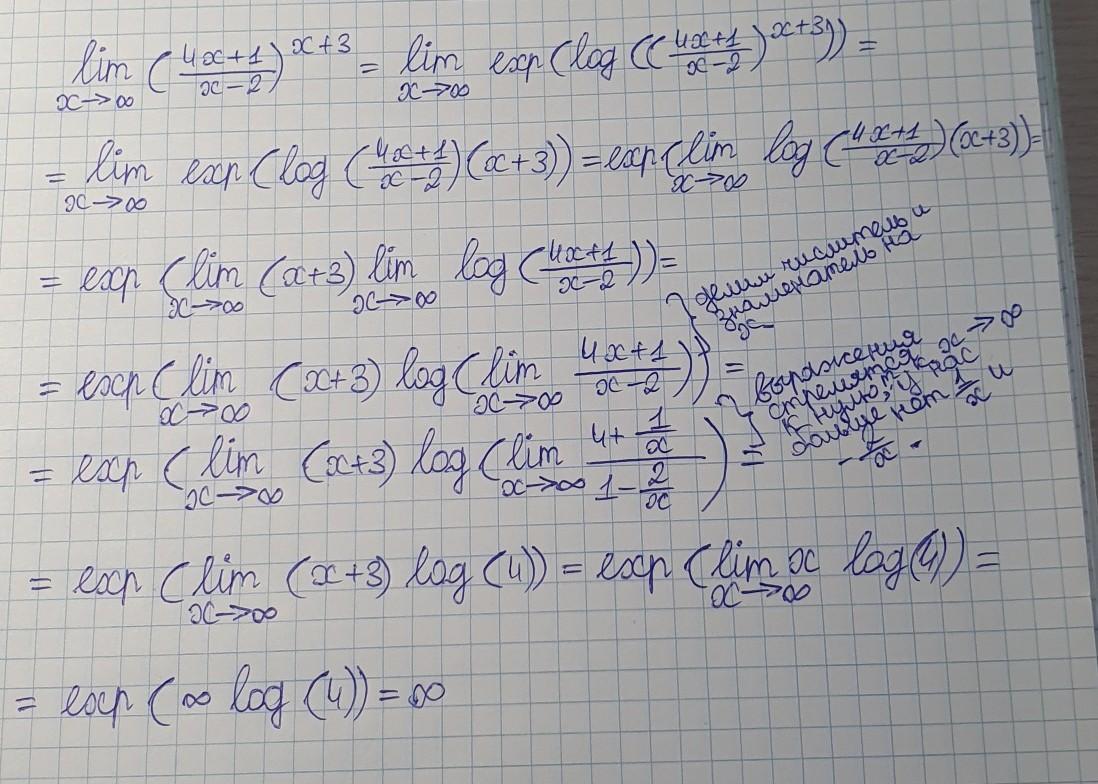 lim x→∞ ((4x+1)/(x-2))^(x+3) = lim x→∞ exp(log(((4x+1)/(x-2))^(x+3))) =
= lim x→∞ exp(log((4x+1)/(x-2))(x+3)) = exp(lim x→∞ log((4x+1)/(x-2))(x+3)) =
= exp(lim x→∞ (x+3) lim x→∞ log((4x+1)/(x-2))) =
делим числитель и
знаменатель на
x
= exp(lim x→∞ (x+3) log(lim x→∞ (4x+1)/(x-2))) =
выражения
стремятся к x→∞
к нулю, у нас
больше нет 1/x и
-2/x.
= exp(lim x→∞ (x+3) log(lim x→∞ (4+1/x)/(1-2/x)) =
= exp(lim x→∞ (x+3) log(4)) = exp(lim x→∞ x log(4)) =
= exp(∞ log(4)) = ∞